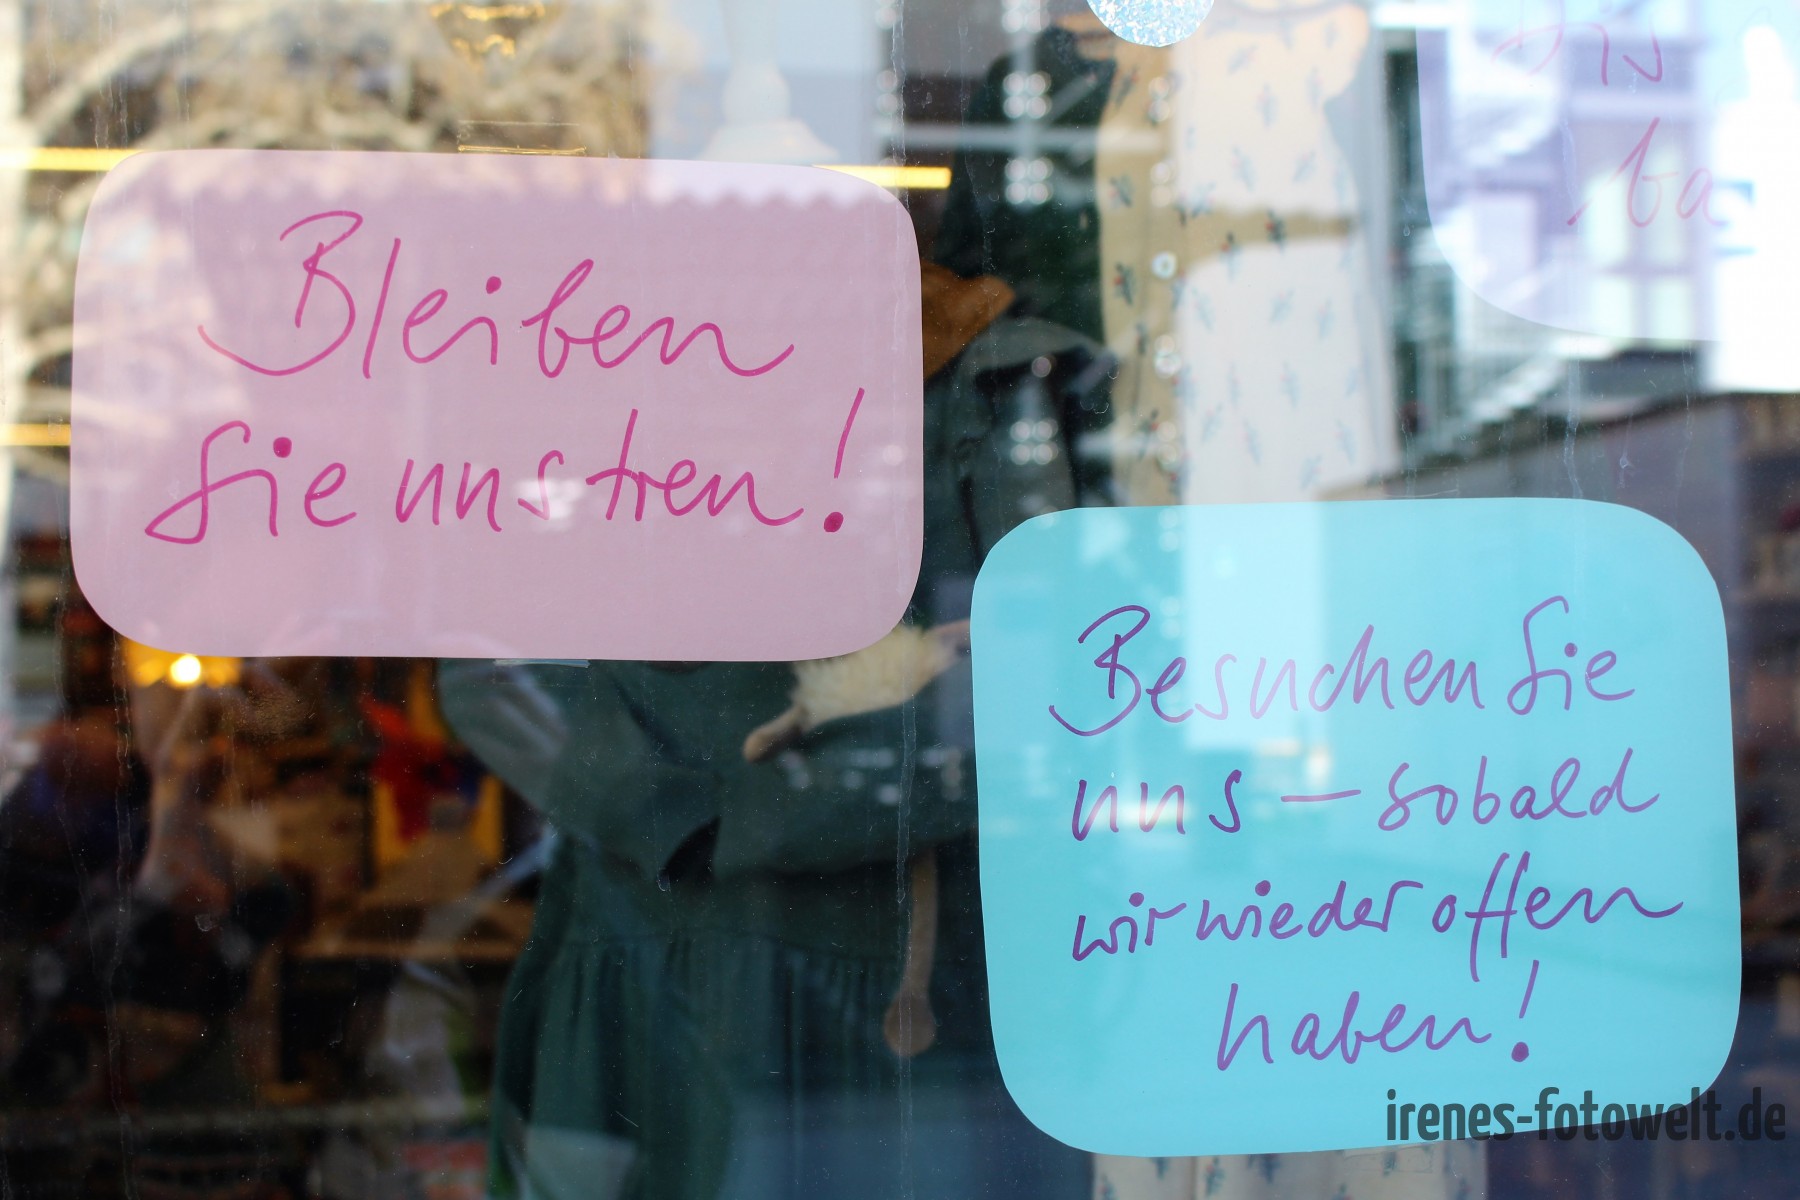 Bleiben
Sie uns treu!
Dis
ba
Besuchen Sie
uns – sobald
wir wieder offen
haben!
irenes-fotowelt.de